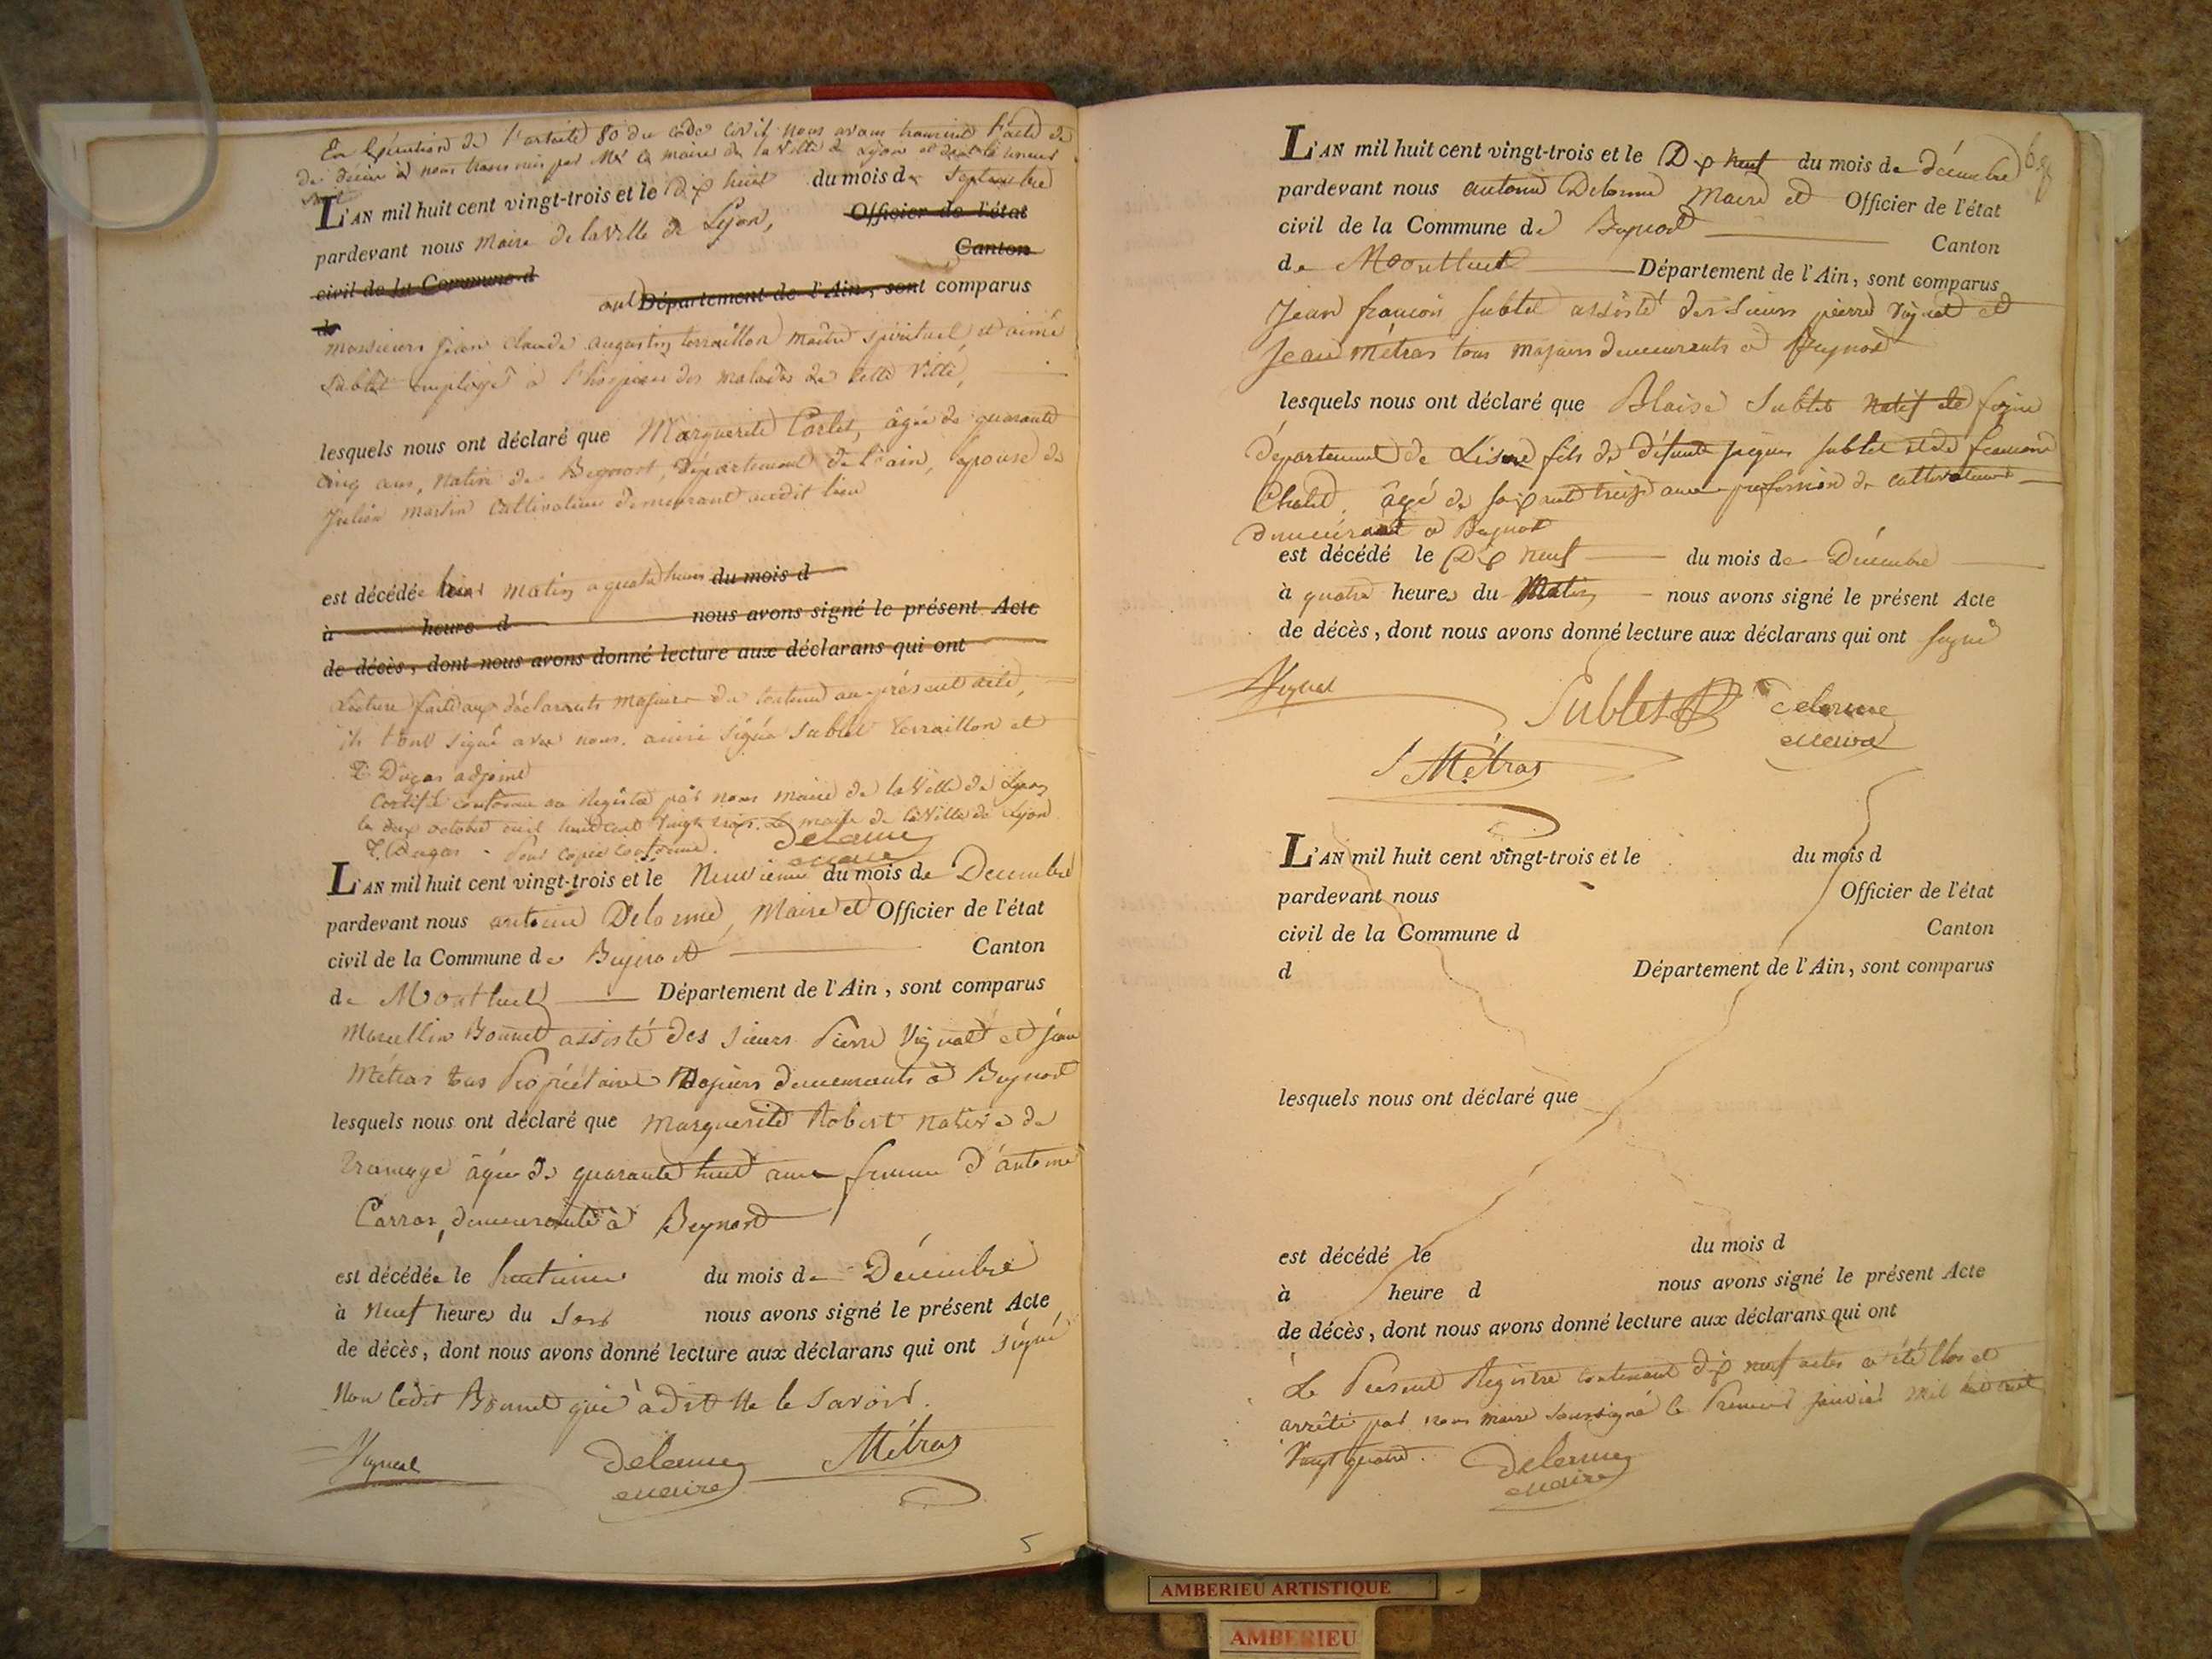 En Exécution de l'article 80 du code civil nous avons transcrit l'acte de
de décès à nous transmis par Mr le maire de la ville de Lyon et dont la teneur
suit
L'AN mil huit cent vingt-trois et le dix huit du mois de Septembre
pardevant nous Maire de la Ville de Lyon, Officier de l'état
civil de la Commune d Canton
de ont Département de l'Ain, sont comparus
Messieurs Jean Claude Augustin terraillon maître spirituel et aimé
Sublet employé à l'hospice des malades de cette ville,
lesquels nous ont déclaré que Marguerite Carlet, âgée de quarante
cinq ans, native de Beynost, Département de l'ain, épouse de
Julien Martin Cultivateur demeurant audit lieu
est décédée hier matin a quatre heures du mois d
à heure d nous avons signé le présent Acte
de décès, dont nous avons donné lecture aux déclarans qui ont
Lecture faite aux déclarants majeurs du contenu au présent acte,
ils l'ont signé avec nous. ainsi signés Sublet Terraillon et
T. Dugas adjoint
Certifié conforme au Registre par nous maire de la Ville de Lyon
le deux octobre mil huit cent vingt trois. Le maire de la Ville de Lyon
T. Dugas. Pour copie conforme. Delorme
maire
L'AN mil huit cent vingt-trois et le Neuvieme du mois de Decembre
pardevant nous antoine Delorme, Maire et Officier de l'état
civil de la Commune de Beynost Canton
de Montluel Département de l'Ain, sont comparus
Marcellin Bonnet assisté des sieurs Pierre Vignat et jean
Métras tous Propriétaires Majeurs demeurants à Beynost
lesquels nous ont déclaré que Marguerite Robert native de
Tramoye âgée de quarante huit ans femme d'antoine
Carras, demeurante à Beynost
est décédée le huitieme du mois de Décembre
à Neuf heures du Soir nous avons signé le présent Acte
de décès, dont nous avons donné lecture aux déclarans qui ont signé
Non ledit Bonnet qui à dit Ne le Savoir.
Vignat Delorme Métras
maire
5
L'AN mil huit cent vingt-trois et le Dix neuf du mois de décembre
pardevant nous antoine Delorme Maire et Officier de l'état
civil de la Commune de Beynost Canton
de Montluel Département de l'Ain, sont comparus
Jean françois Sublet assisté des Sieurs pierre Vignat et
Jean Métras tous majeurs demeurants à Beynost
lesquels nous ont déclaré que Blaise Sublet Natif de
Département de L'isere fils de défunt jaques Sublet et de
Chalet, âgé de soixante treize ans profession de cultivateur
demeurant à Beynost
est décédé le Dix neuf du mois de Décembre
à quatre heures du Matin nous avons signé le présent Acte
de décès, dont nous avons donné lecture aux déclarans qui ont signé
Vignat Sublet Delorme
maire
J Métras
L'AN mil huit cent vingt-trois et le du mois d
pardevant nous Officier de l'état
civil de la Commune d Canton
d Département de l'Ain, sont comparus
lesquels nous ont déclaré que
est décédé le du mois d
à heure d nous avons signé le présent Acte
de décès, dont nous avons donné lecture aux déclarans qui ont
Le Present Registre contenant dix neuf actes a été Clos et
arrêté par nous maire soussigné le Premier janvier mil huit cent
Vingt quatre. Delorme
maire
AMBERIEU ARTISTIQUE
AMBERIEU